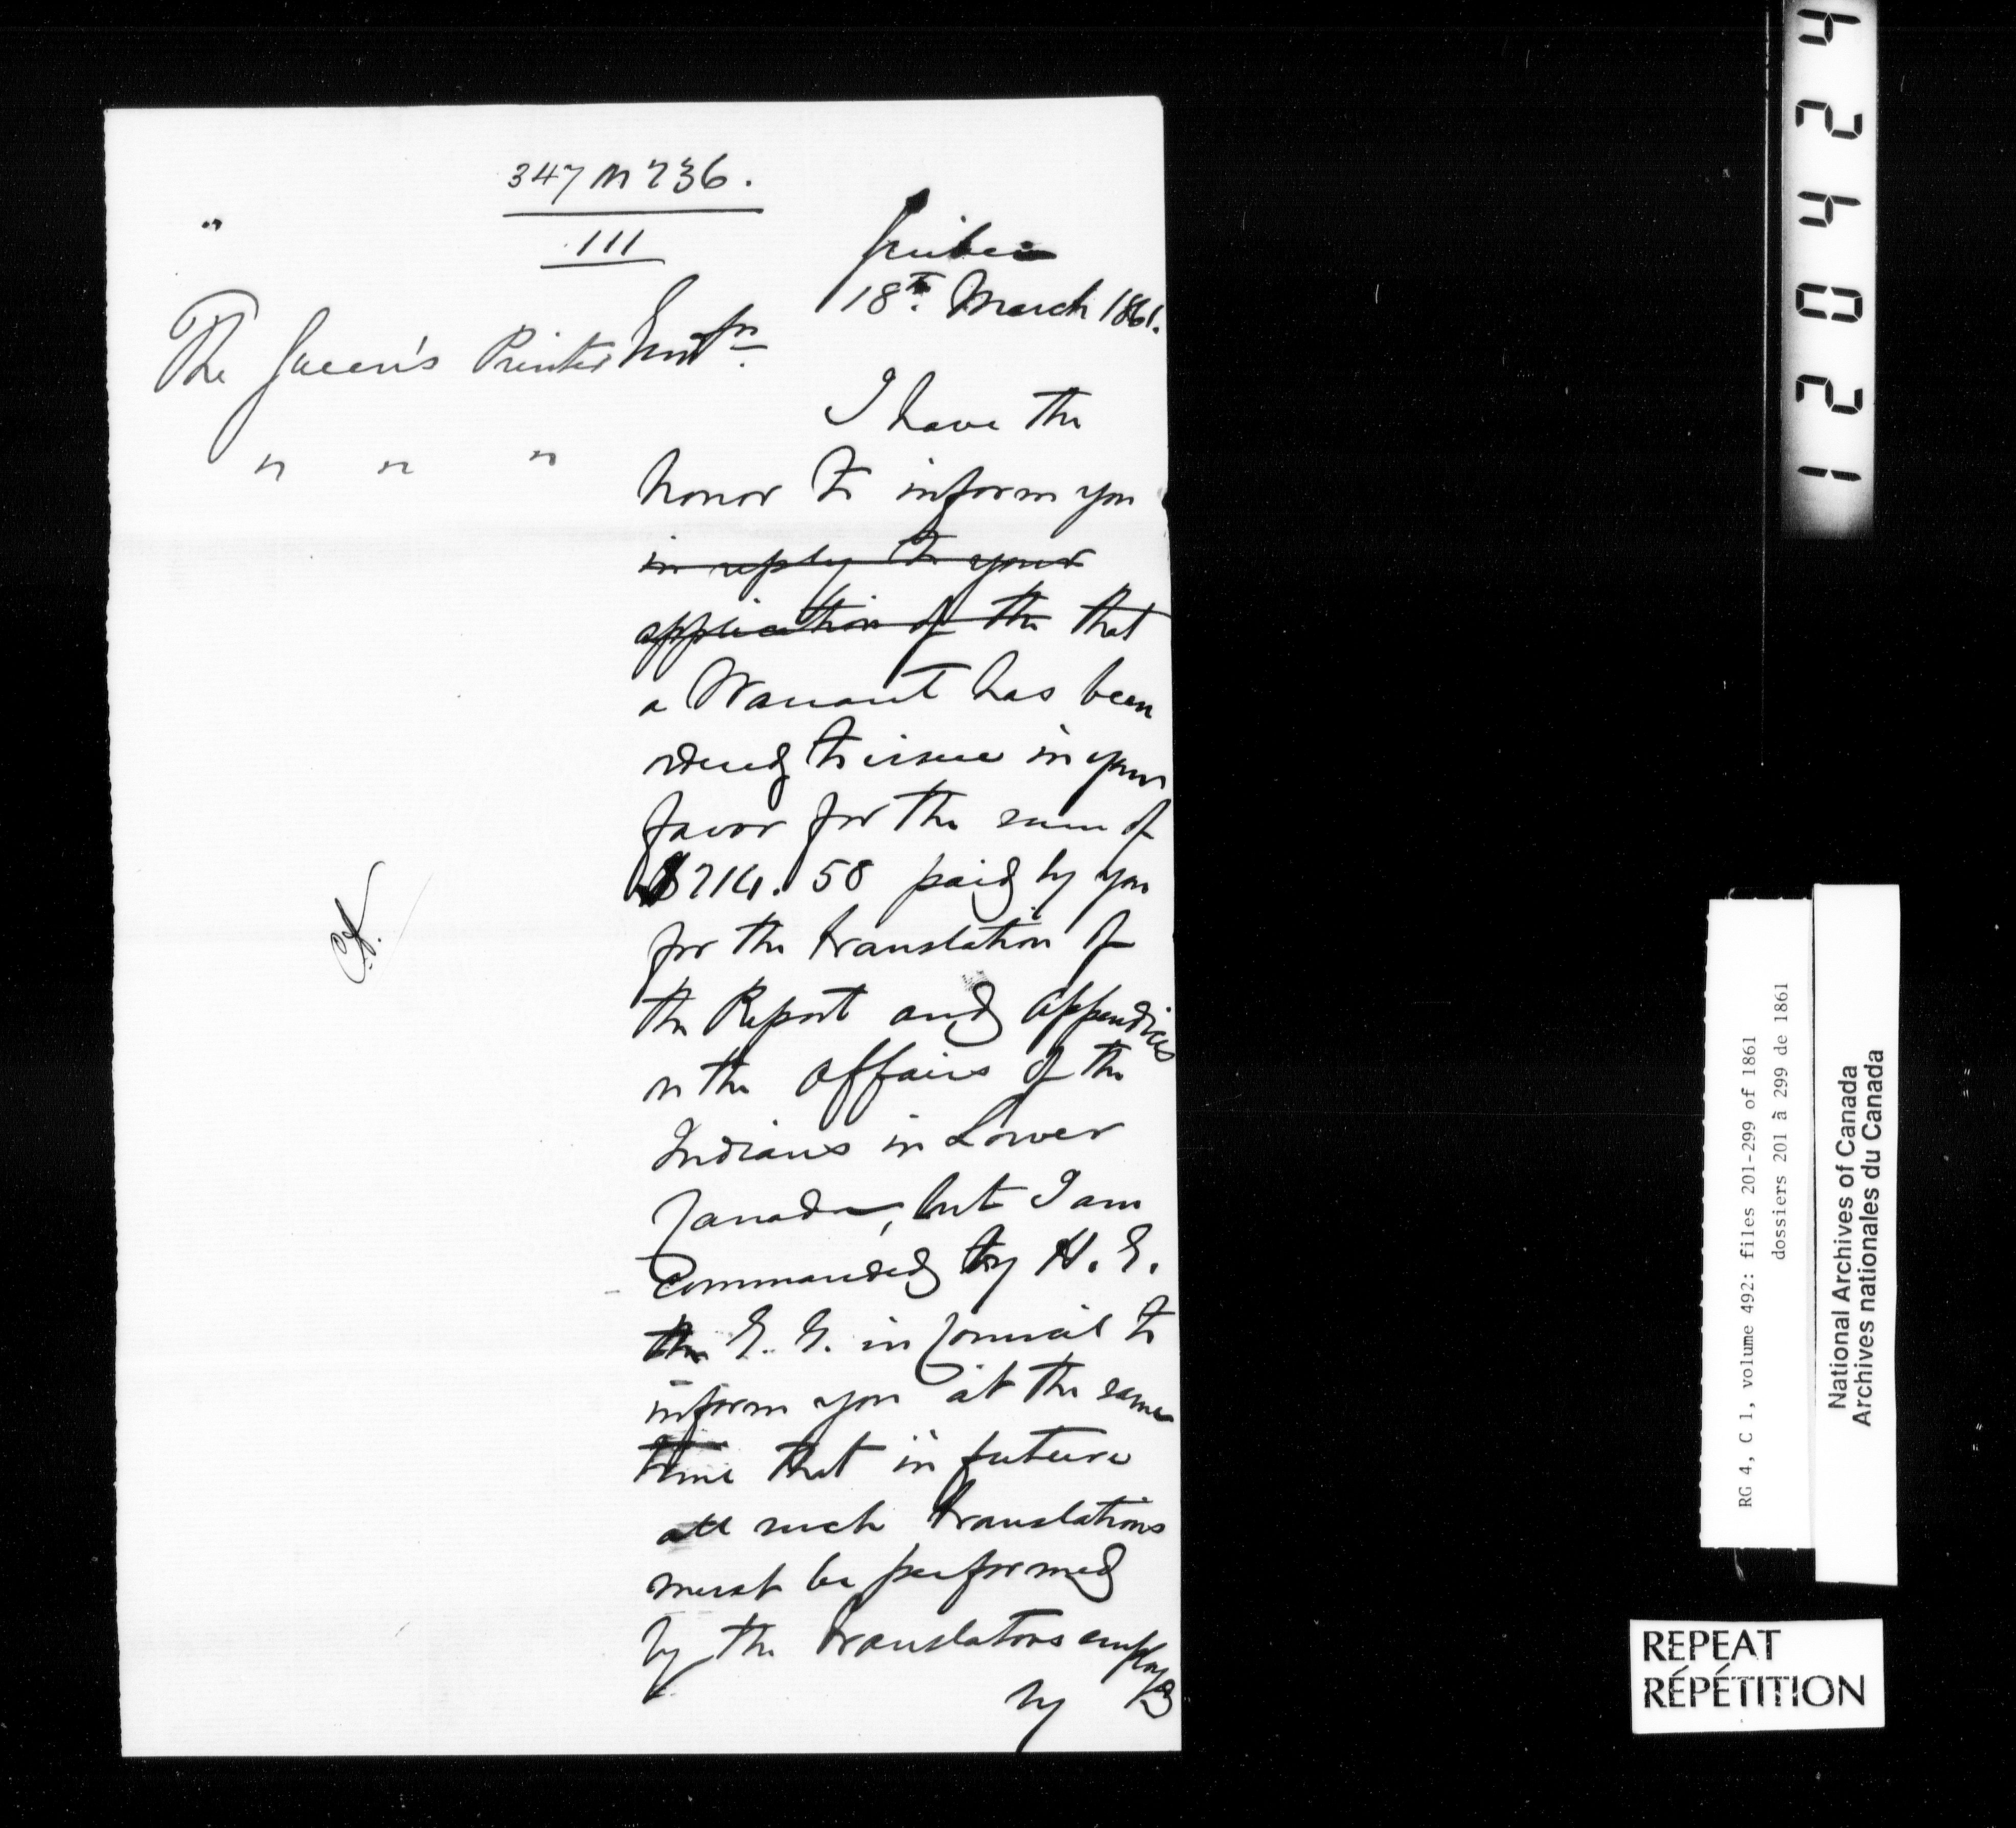 347 on 236.
111
Quebec
18th. March 1861.
The Queen's Printer
" " "
I have the
honor to inform you
in reply to your
application of the that
a Warrant has been
ordered to issue in your
favor for the sum of
$714.58 paid by you
for the translation of
the Report and appendices
on the affairs of the
Indians in Lower
Canada, but I am
commanded by H. E.
the G. G. in Council to
inform you at the same
time that in future
all such translations
must be performed
by the translators employed
by
424
0
21
RG 4, C 1, volume 492: files 201-299 of 1861
dossiers 201 à 299 de 1861
National Archives of Canada
Archives nationales du Canada
REPEAT
RÉPÉTITION